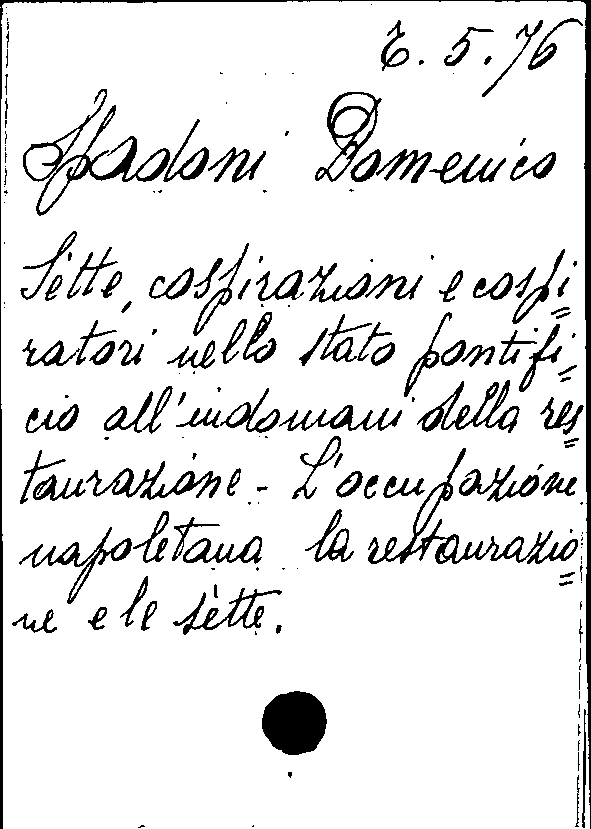 E. 5. 76
Spadoni Domenico
Sètte, cospirazioni e cospi=
ratori nello stato pontifi=
cio all'indomani della res=
taurazione - L'occupazione
napoletana la restaurazio=
ne e le sètte.